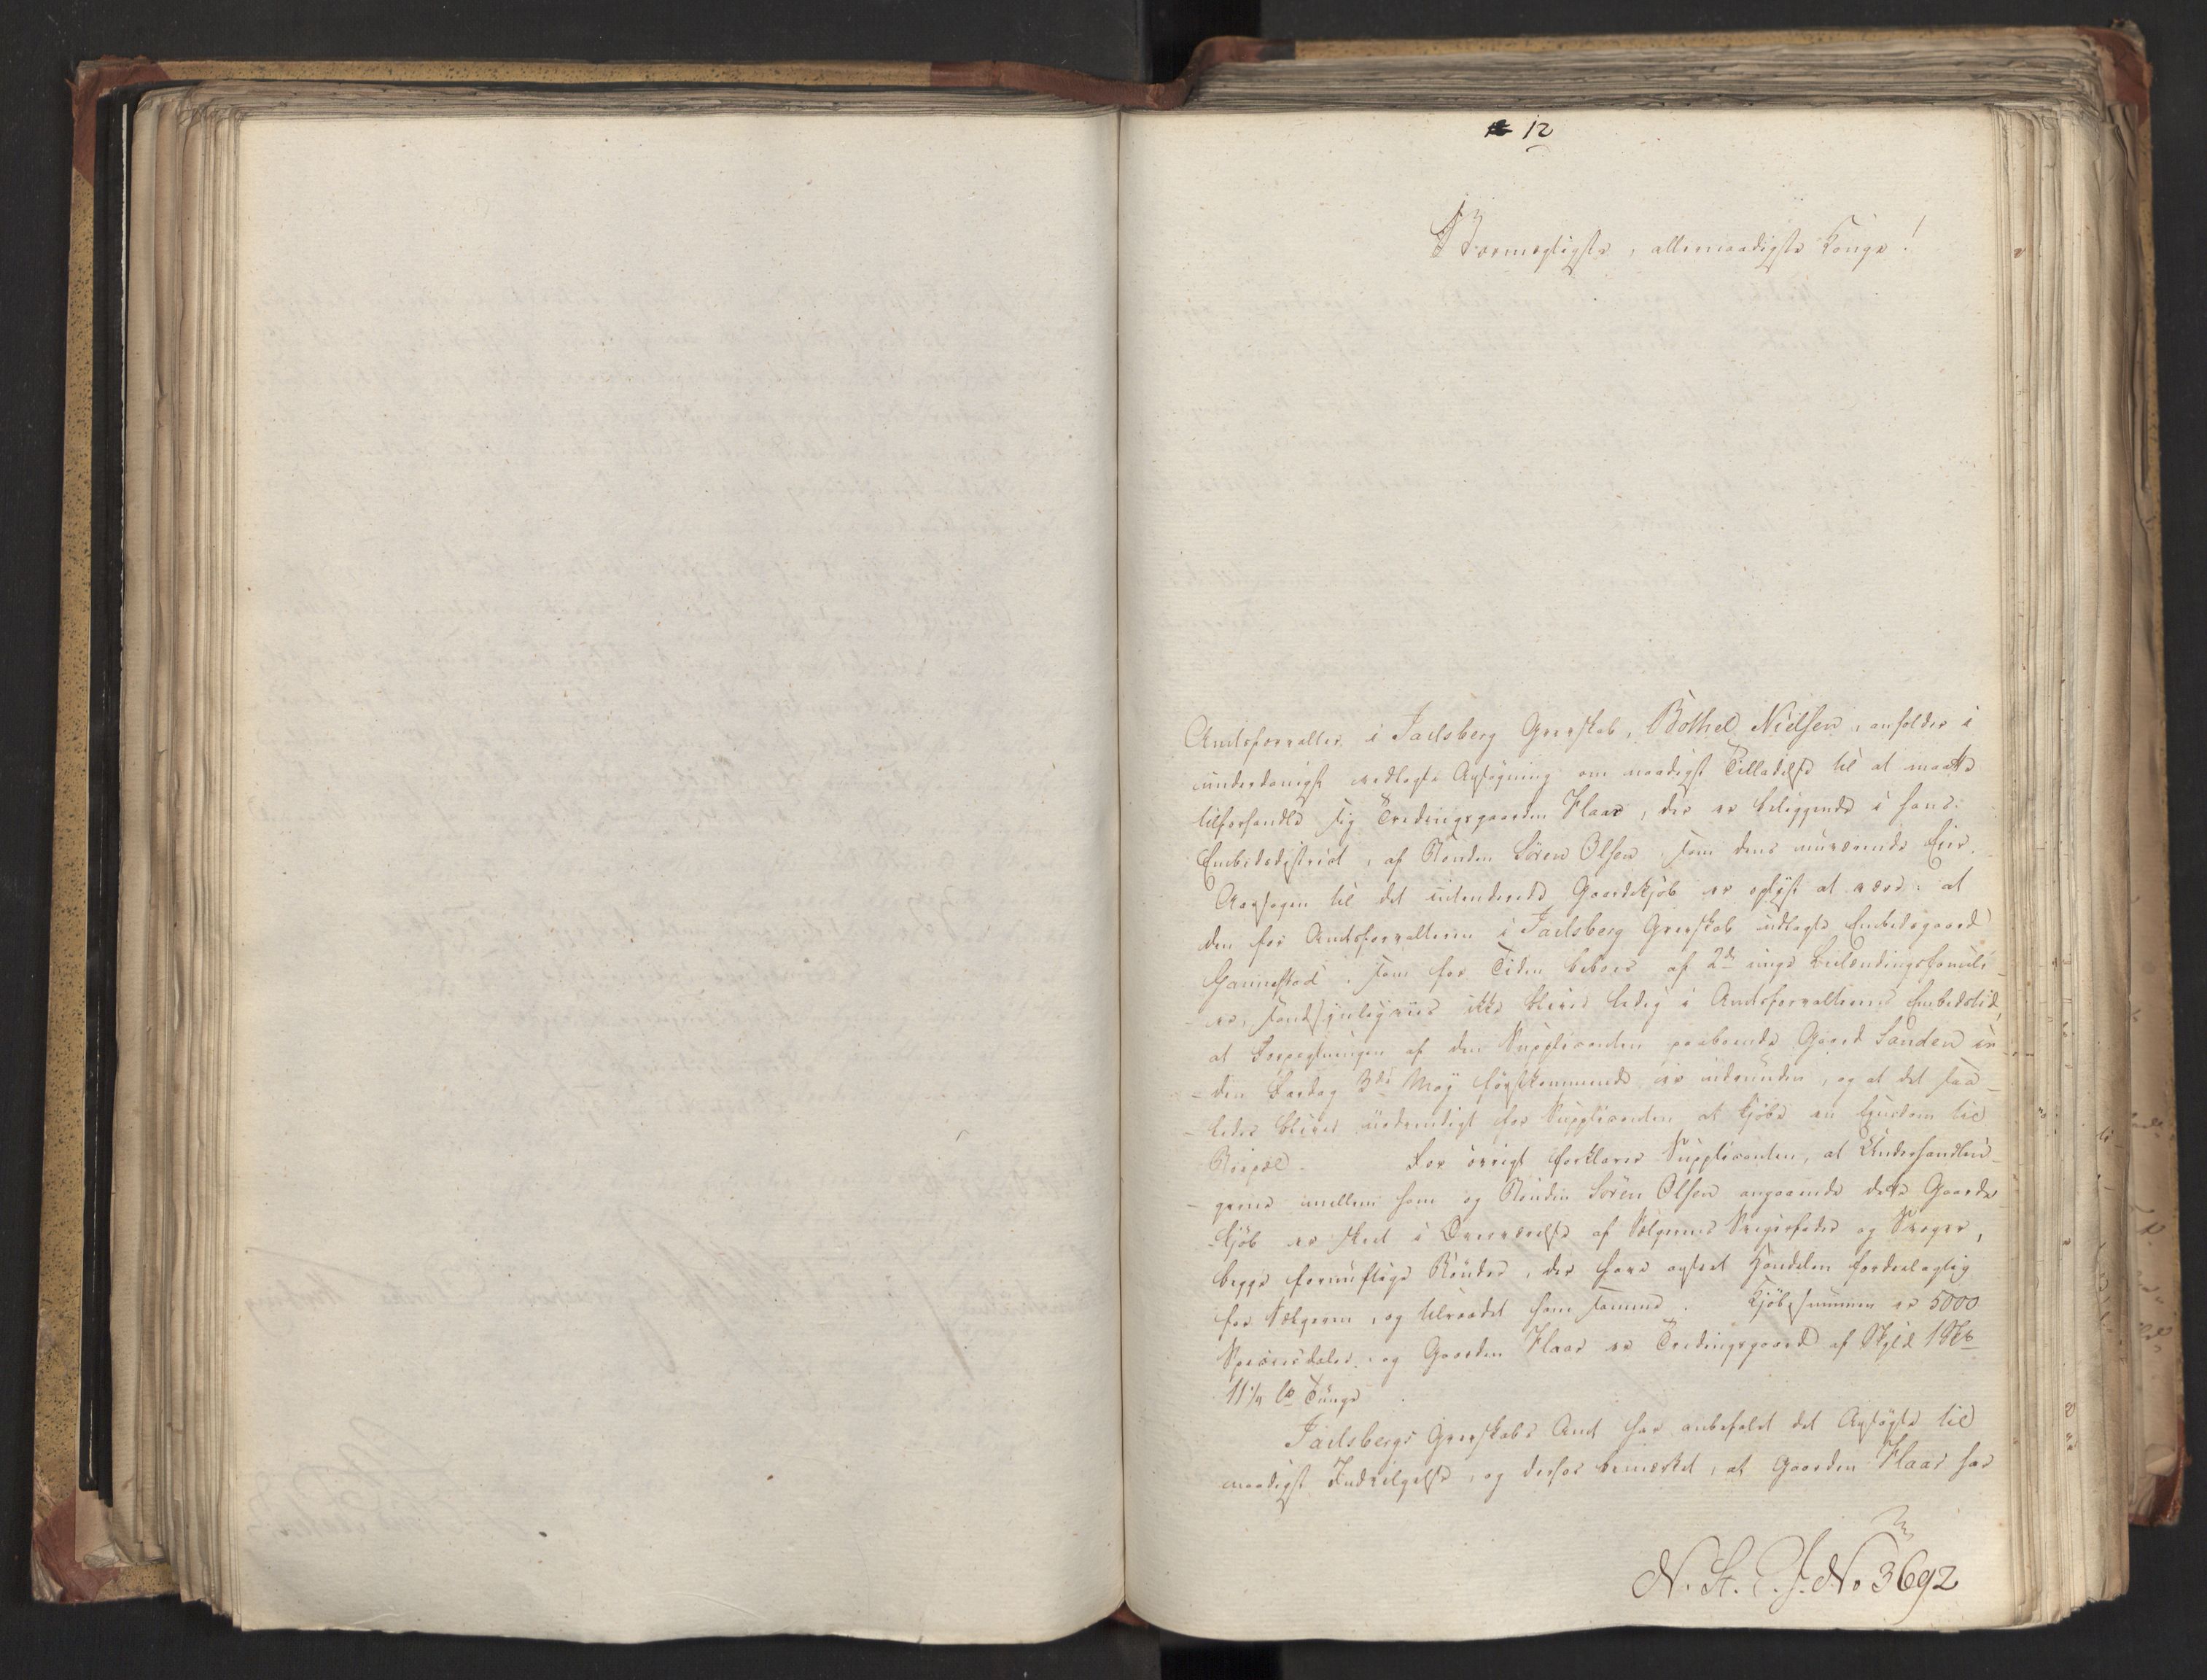 12
Stormægtigste, allernaadigste Konge!
Amtsforvalter i Jarlsberg Grevskab, Bothel Nielsen, anholder i
underdanigst vedlagte Ansögning om naadigst Tilladelse til at maatte
tilforhandle sig Tredingsgaarden Haar, der er beliggende i hans
Embedsdistrict, af Bonden Sören Olsen som dens nuværende Eier.
Aarsagen til det intenderede Gaardekjöb er oplyst at være: at
den for Amtsforvalteren i Jarlsberg Grevskab udlagte Embedsgaard
Gannestad, som for Tiden beboes af 2de unge Leilendingsfamili-
er, sandsynligviis ikke bliver ledig i Amtsforvalterens Embedstid,
at Forpagtningen af den Supplicanten paaboende Gaard Sanden in-
den Fardag 3die May förstkommende er udrunden, og at det saa-
ledes bliver nödvendigt for Supplicanten at kjöbe en Eiendom til
Beopæl. For övrigt forklarer Supplicanten, at Underhandlin-
gerne mellem ham og Bonden Sören Olsen angaaende dette Gaarde-
kjöb er skeet i Overværelse af Sælgerens Svigerfader og Svoger,
begge fornuftige Bönder, der have anseet Handelen fordeelagtig
for Sælgeren, og tilraadet ham samme. Kjöbesummen er 5000
Speciesdaler, og Gaarden Haar er Tredingsgaard af Skyld 1 Skb
11¼ lb Tunge
Jarlsbergs Grevskabs Amt har anbefalet det Ansögte til
naadigst Indvilgelse, og derhos bemærket, at Gaarden Haar har
N. St. C. J. No 3692